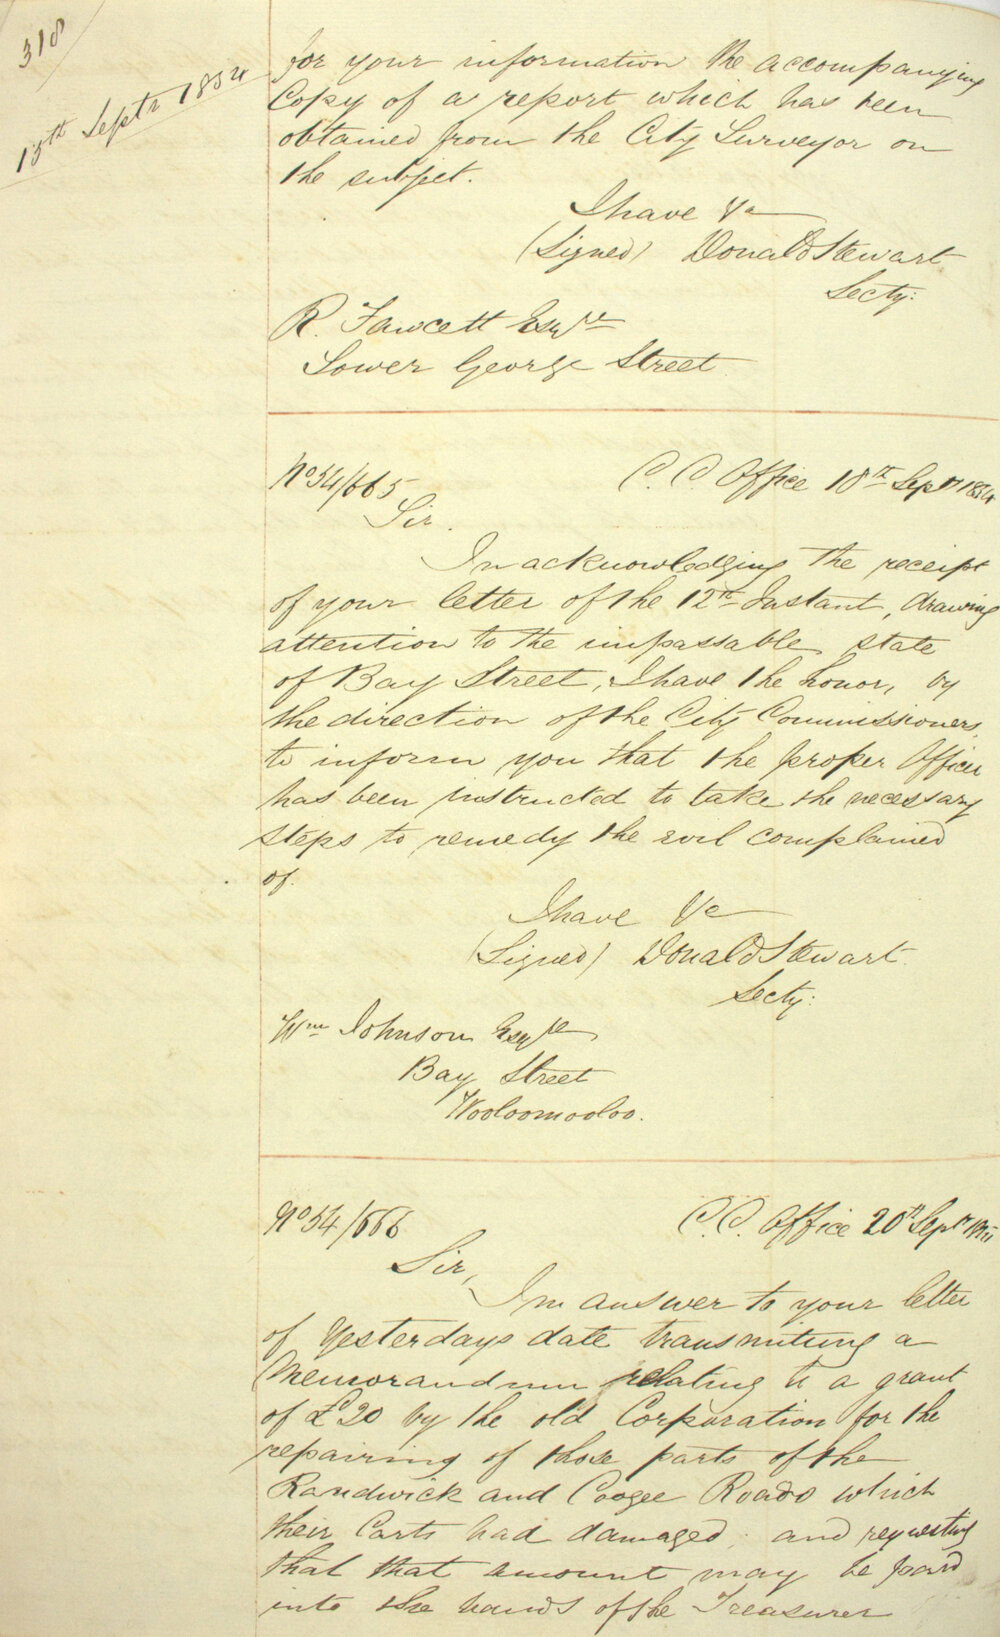 318
15th Septr 1854
for your information the accompanying
Copy of a report which has been
obtained from the City Surveyor on
the subject.
I have &c
(Signed) Donald Stewart
Secty:
R. Fawcett Esqre
Lower George Street
No 54/665
C. C. Office 18th Sept 1854
Sir.
In acknowledging the receipt
of your letter of the 12th Instant, drawing
attention to the impassable state
of Bay Street, I have the honor, by
the direction of the City Commissioners,
to inform you that the proper Officer
has been instructed to take the necessary
steps to remedy the evil complained
of.
I have &c
(Signed) Donald Stewart
Secty:
Wm Johnson Esqre
Bay Street
Wooloomooloo.
No 54/666
C. C. Office 20th Septr
Sir,
In answer to your letter
of Yesterdays date transmitting a
Memorandum relating to a grant
of £20 by the old Corporation for the
repairing of those parts of the
Randwick and Coogee Roads which
their Carts had damaged, and requesting
that that amount may be paid
into the hands of the Treasurer